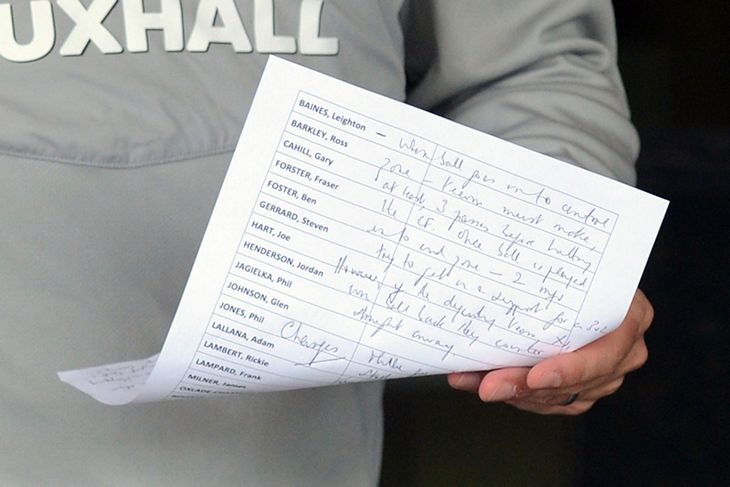 UXHALL
BAINES, Leighton
BARKLEY, Ross - When ball goes into centre
CAHILL, Gary zone team must make
FORSTER, Fraser at least 3 passes before hitting
FOSTER, Ben the CF. Once ball is played
GERRARD, Steven into end zone - 2 mfs
HART, Joe try to get in a support for a
HENDERSON, Jordan However if the defending team
JAGIELKA, Phil win ball back they counter
JOHNSON, Glen straight away.
JONES, Phil
LALLANA, Adam Changes
LAMBERT, Rickie
LAMPARD, Frank
MILNER, James